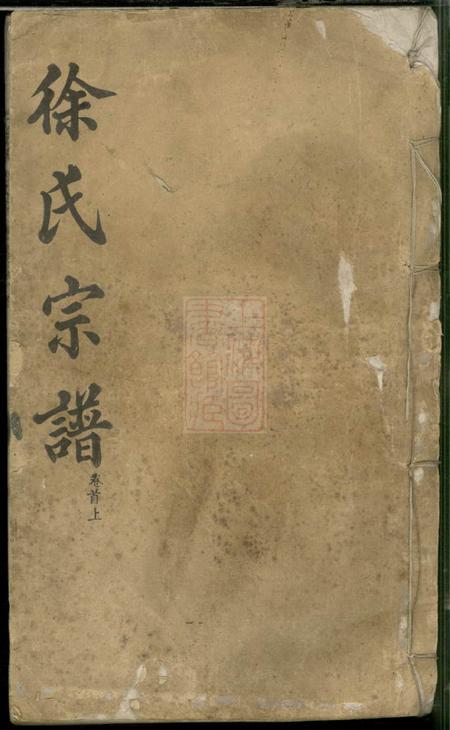 徐氏宗譜
卷首上
上海圖
書館藏